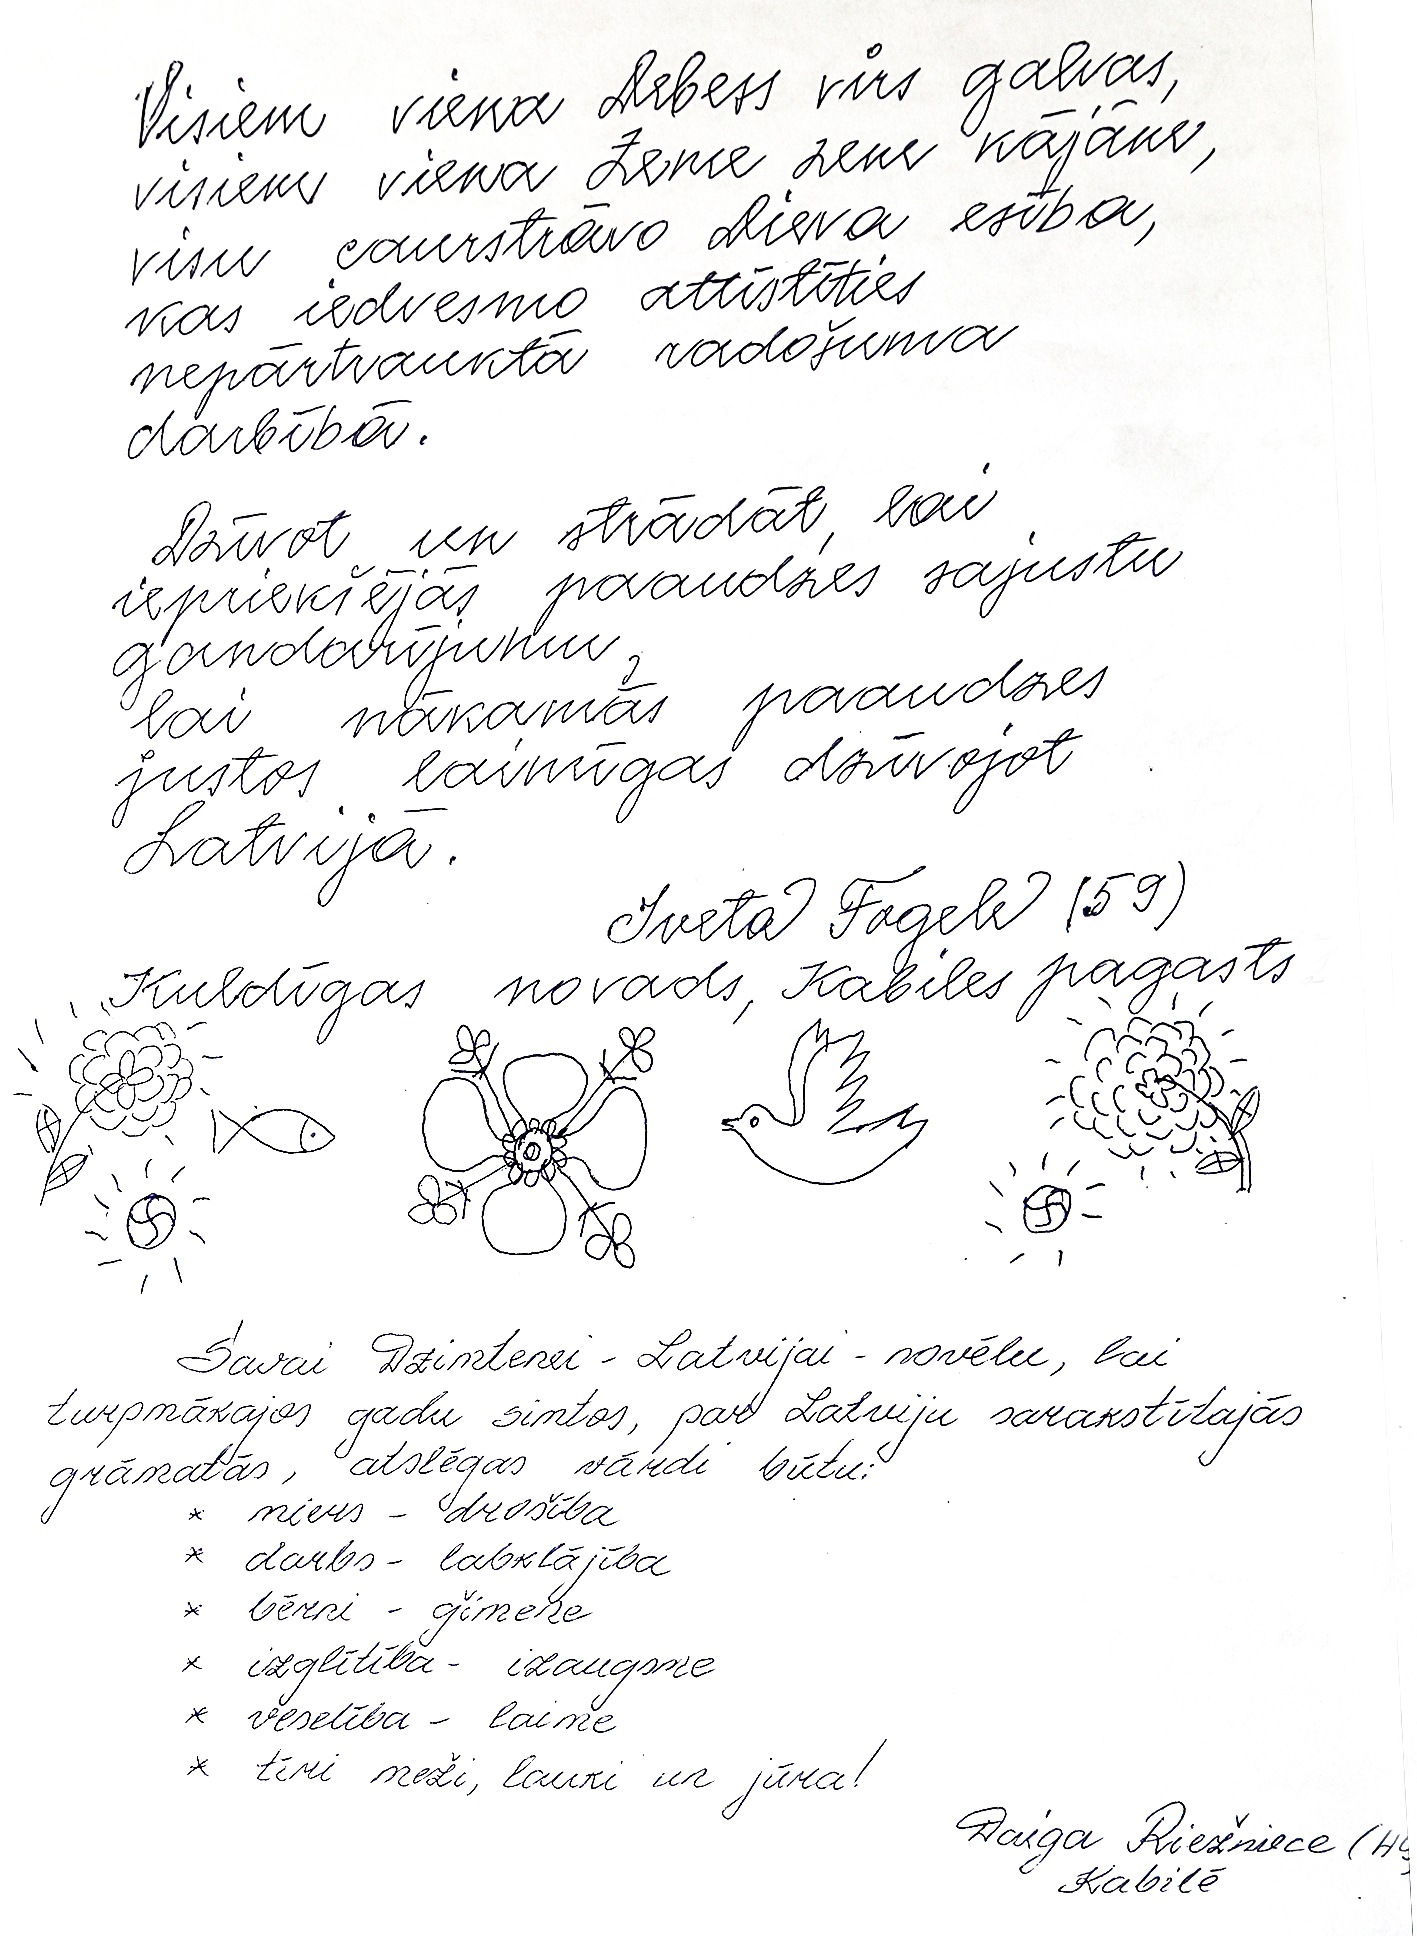 Visiem viena Debess virs galvas,
visiem viena Zeme zem kājām,
visu caurstrāvo Dieva esība,
kas iedvesmo attīstīties
nepārtrauktā radošuma
darbībā.
Dzīvot un strādāt, lai
iepriekšējās paaudzes sajustu
gandarījumu,
lai nākamās paaudzes
justos laimīgas dzīvojot
Latvijā.
Iveta Fogele (59)
Kuldīgas novads, Kabiles pagasts
Savai Dzimtenei - Latvijai - novēlu, lai
turpmākajos gadu simtos, par Latviju sarakstītajās
grāmatās, atslēgas vārdi būtu:
* miers - drošība
* darbs - labklājība
* bērni - ģimene
* izglītība - izaugsme
* veselība - laime
* tīri meži, lauki un jūra!
Daiga Riežniece
Kabilē